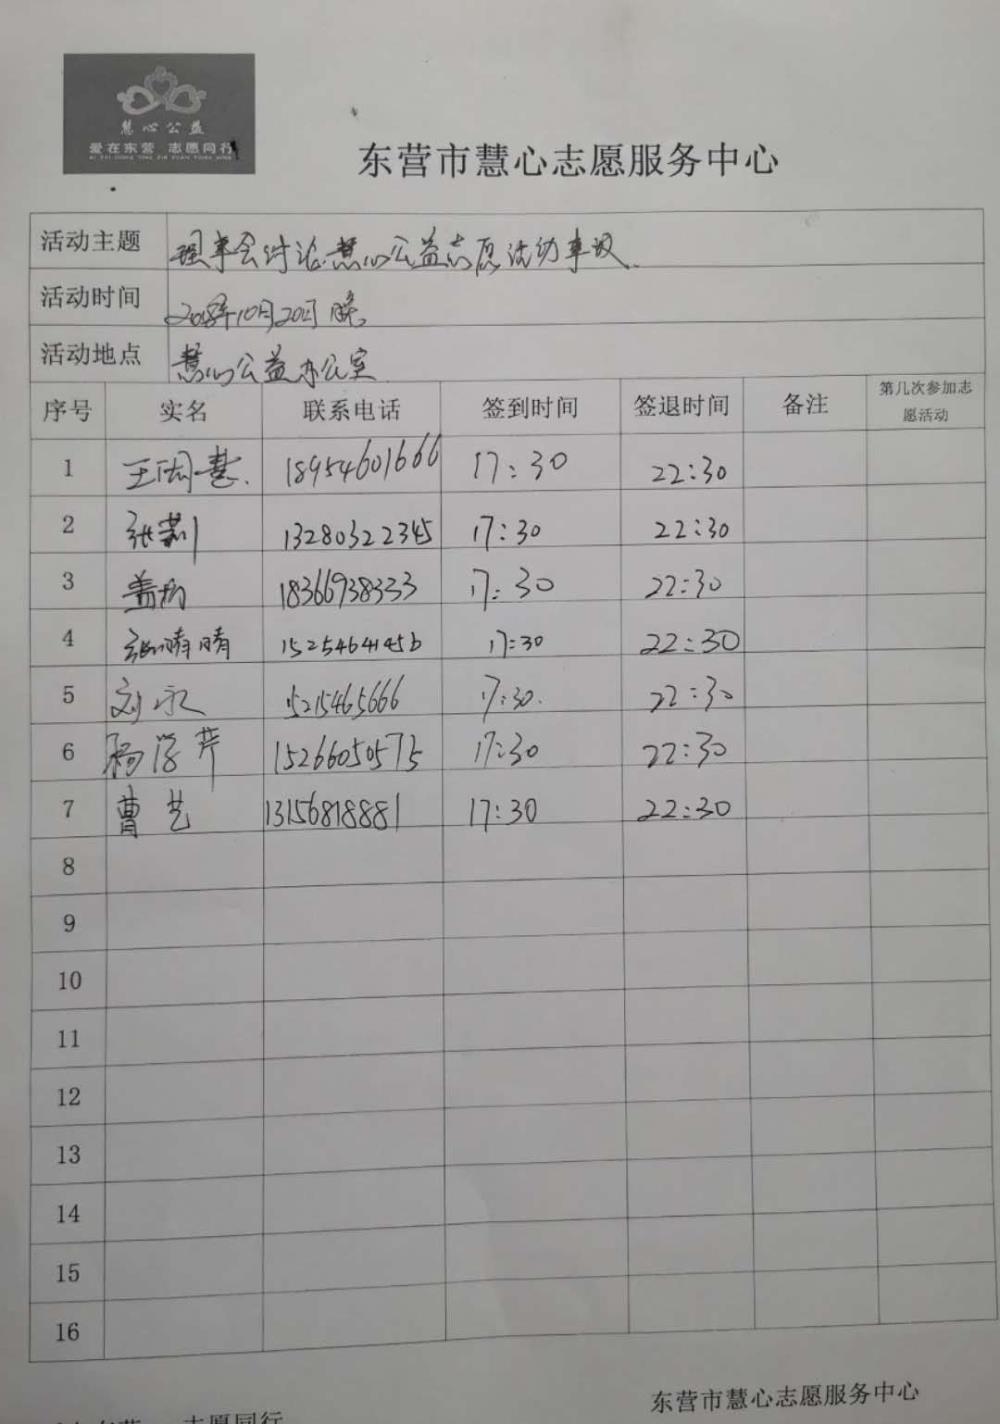 慧心公益
爱在东营 志愿同行
东营市慧心志愿服务中心
活动主题 理事会讨论慧心公益志愿活动事议.
活动时间 2018年10月20日晚.
活动地点 慧心公益办公室
序号 实名 联系电话 签到时间 签退时间 备注 第几次参加志
愿活动
1 慧 18954601666 17:30 22:30
2 张莉 13280322345 17:30 22:30
3 17:30 22:30
4 张晴晴 15254641456 17:30 22:30
5 刘永 15215465666 17:30. 22:30
6 杨学芹 15266050575 17:30 22:30
7 曹艺 13156818881 17:30 22:30
8
9
10
11
12
13
14
15
16
东营市慧心志愿服务中心
志愿同行